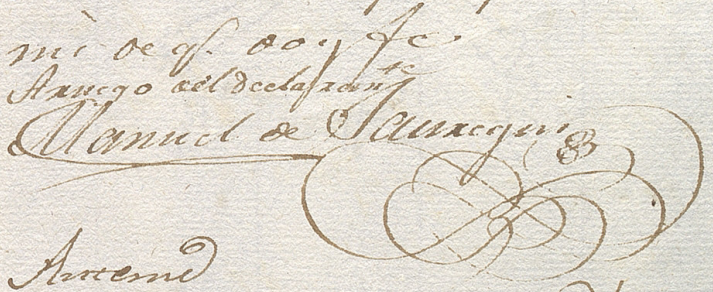 mi de q.e doy fe
Arruego del declarante
Manuel de Jauregui
Antemi